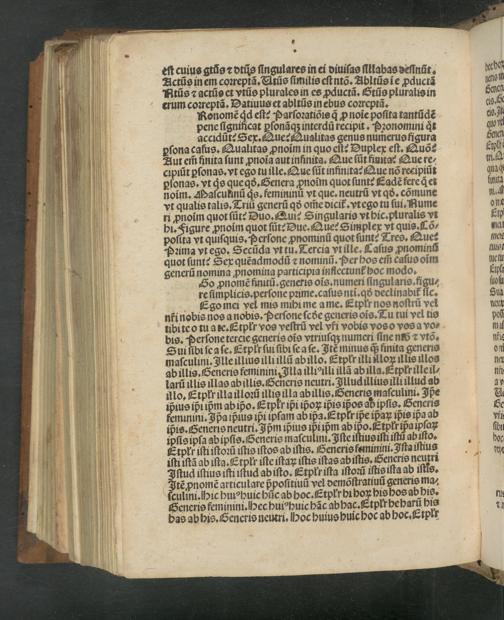 est cuius gtūs ⁊ dtūs singulares in ei diuisas sillabas desinūt.
Actūs in em correptā. Vtūs similis est ntō. Abltūs i e ꝓductā
Ntūs ⁊ actūs et vtūs plurales in es ꝓductā. Gtūs pluralis in
erum correptā. Datiuus et abltūs in ebus correptā.
Ronomē qd est? Pars orationis q̄ ꝓ noīe posita tantūdē
pene significat ꝑsonāqꝫ interdū recipit. Pronomini q̄t
accidūt? Sex. Que? Qualitas genus numerus figura
ꝑsona casus. Qualitas ꝓnoīm in quo est? Duplex est. Quō?
Aut em̄ finita sunt ꝓnoīa aut infinita. Que sūt finita? Que re-
cipiūt ꝑsonas. vt ego tu ille. Que sūt infinita? Que nō recipiūt
ꝑsonas. vt q̄s que qd̄. Genera ꝓnoīm quot sunt? Eadē fere q̄ et
noīm. Masculinū q̄s. femininū vt que. neutrū vt qd̄. cōmune
vt qualis talis. Triū generū qd̄ om̄e dicit̄. vt ego tu sui. Nume
ri ꝓnoīm quot sūt? Duo. Qui? Singularis vt hic. pluralis vt
hi. Figure ꝓnoīm quot sūt? Due. Que? Simplex vt quis. Cō-
posita vt quisquis. Persone ꝓnominū quot sunt? Tres. Que?
Prima vt ego. Secūda vt tu. Tercia vt ille. Casus ꝓnominū
quot sunt? Sex quēadmodū ⁊ nominū. Per hos em̄ casus oīm
generū nomina ꝓnomina participia inflectunt̄ hoc modo.
Go ꝓnomē finitū. generis oīs. numeri singularis. figu-
re simplicis. persone prime. casus nti. qd̄ declinabit̄ sic.
Ego mei vel mis mihi me a me. Etplr nos nostrū vel
nr̄i nobis nos a nobis. Persone scd̄e generis oīs. Tu tui vel tis
tibi te o tu a te. Etplr vos vestrū vel vr̄i vobis vos o vos a vo-
bis. Persone tercie generis oīs vtriusqꝫ numeri sine ntō ⁊ vtō.
Sui sibi se a se. Etplr sui sibi se a se. Itē minus qꝫ finita generis
masculini. Ille illius illi illū ab illo. Etplr illi illoꝝ illis illos
ab illis. Generis feminini. Illa illiꝰ illi illā ab illa. Etplr ille il-
larū illis illas ab illis. Generis neutri. Illud illius illi illud ab
illo. Etplr illa illorū illis illa ab illis. Generis masculini. Ip̄e
ip̄ius ip̄i ip̄m ab ip̄o. Etplr ip̄i ip̄oꝝ ip̄is ip̄os ab ipsis. Generis
feminini. Ip̄a ip̄ius ip̄i ipsam ab ip̄a. Etplr ip̄e ip̄aꝝ ip̄is ip̄a ab
ip̄is. Generis neutri. Ip̄m ip̄ius ip̄i ip̄m ab ip̄o. Etplr ip̄a ipsoꝝ
ipsis ipsa ab ipsis. Generis masculini. Iste istius isti istū ab isto.
Etplr isti istorū istis istos ab istis. Generis feminini. Ista istius
isti istā ab ista. Etplr iste istaꝝ istis istas ab istis. Generis neutri
Istud istius isti istud ab isto. Etplr ista istorū istis ista ab istis.
Itē ꝓnomē articulare p̄positiuū vel demōstratiuū generis ma-
sculini. Hic huiꝰ huic hūc ab hoc. Etplr hi hoꝝ his hos ab his.
Generis feminini. Hec huiꝰ huic hāc ab hac. Etplr he harū his
has ab his. Generis neutri. Hoc huius huic hoc ab hoc. Etplr